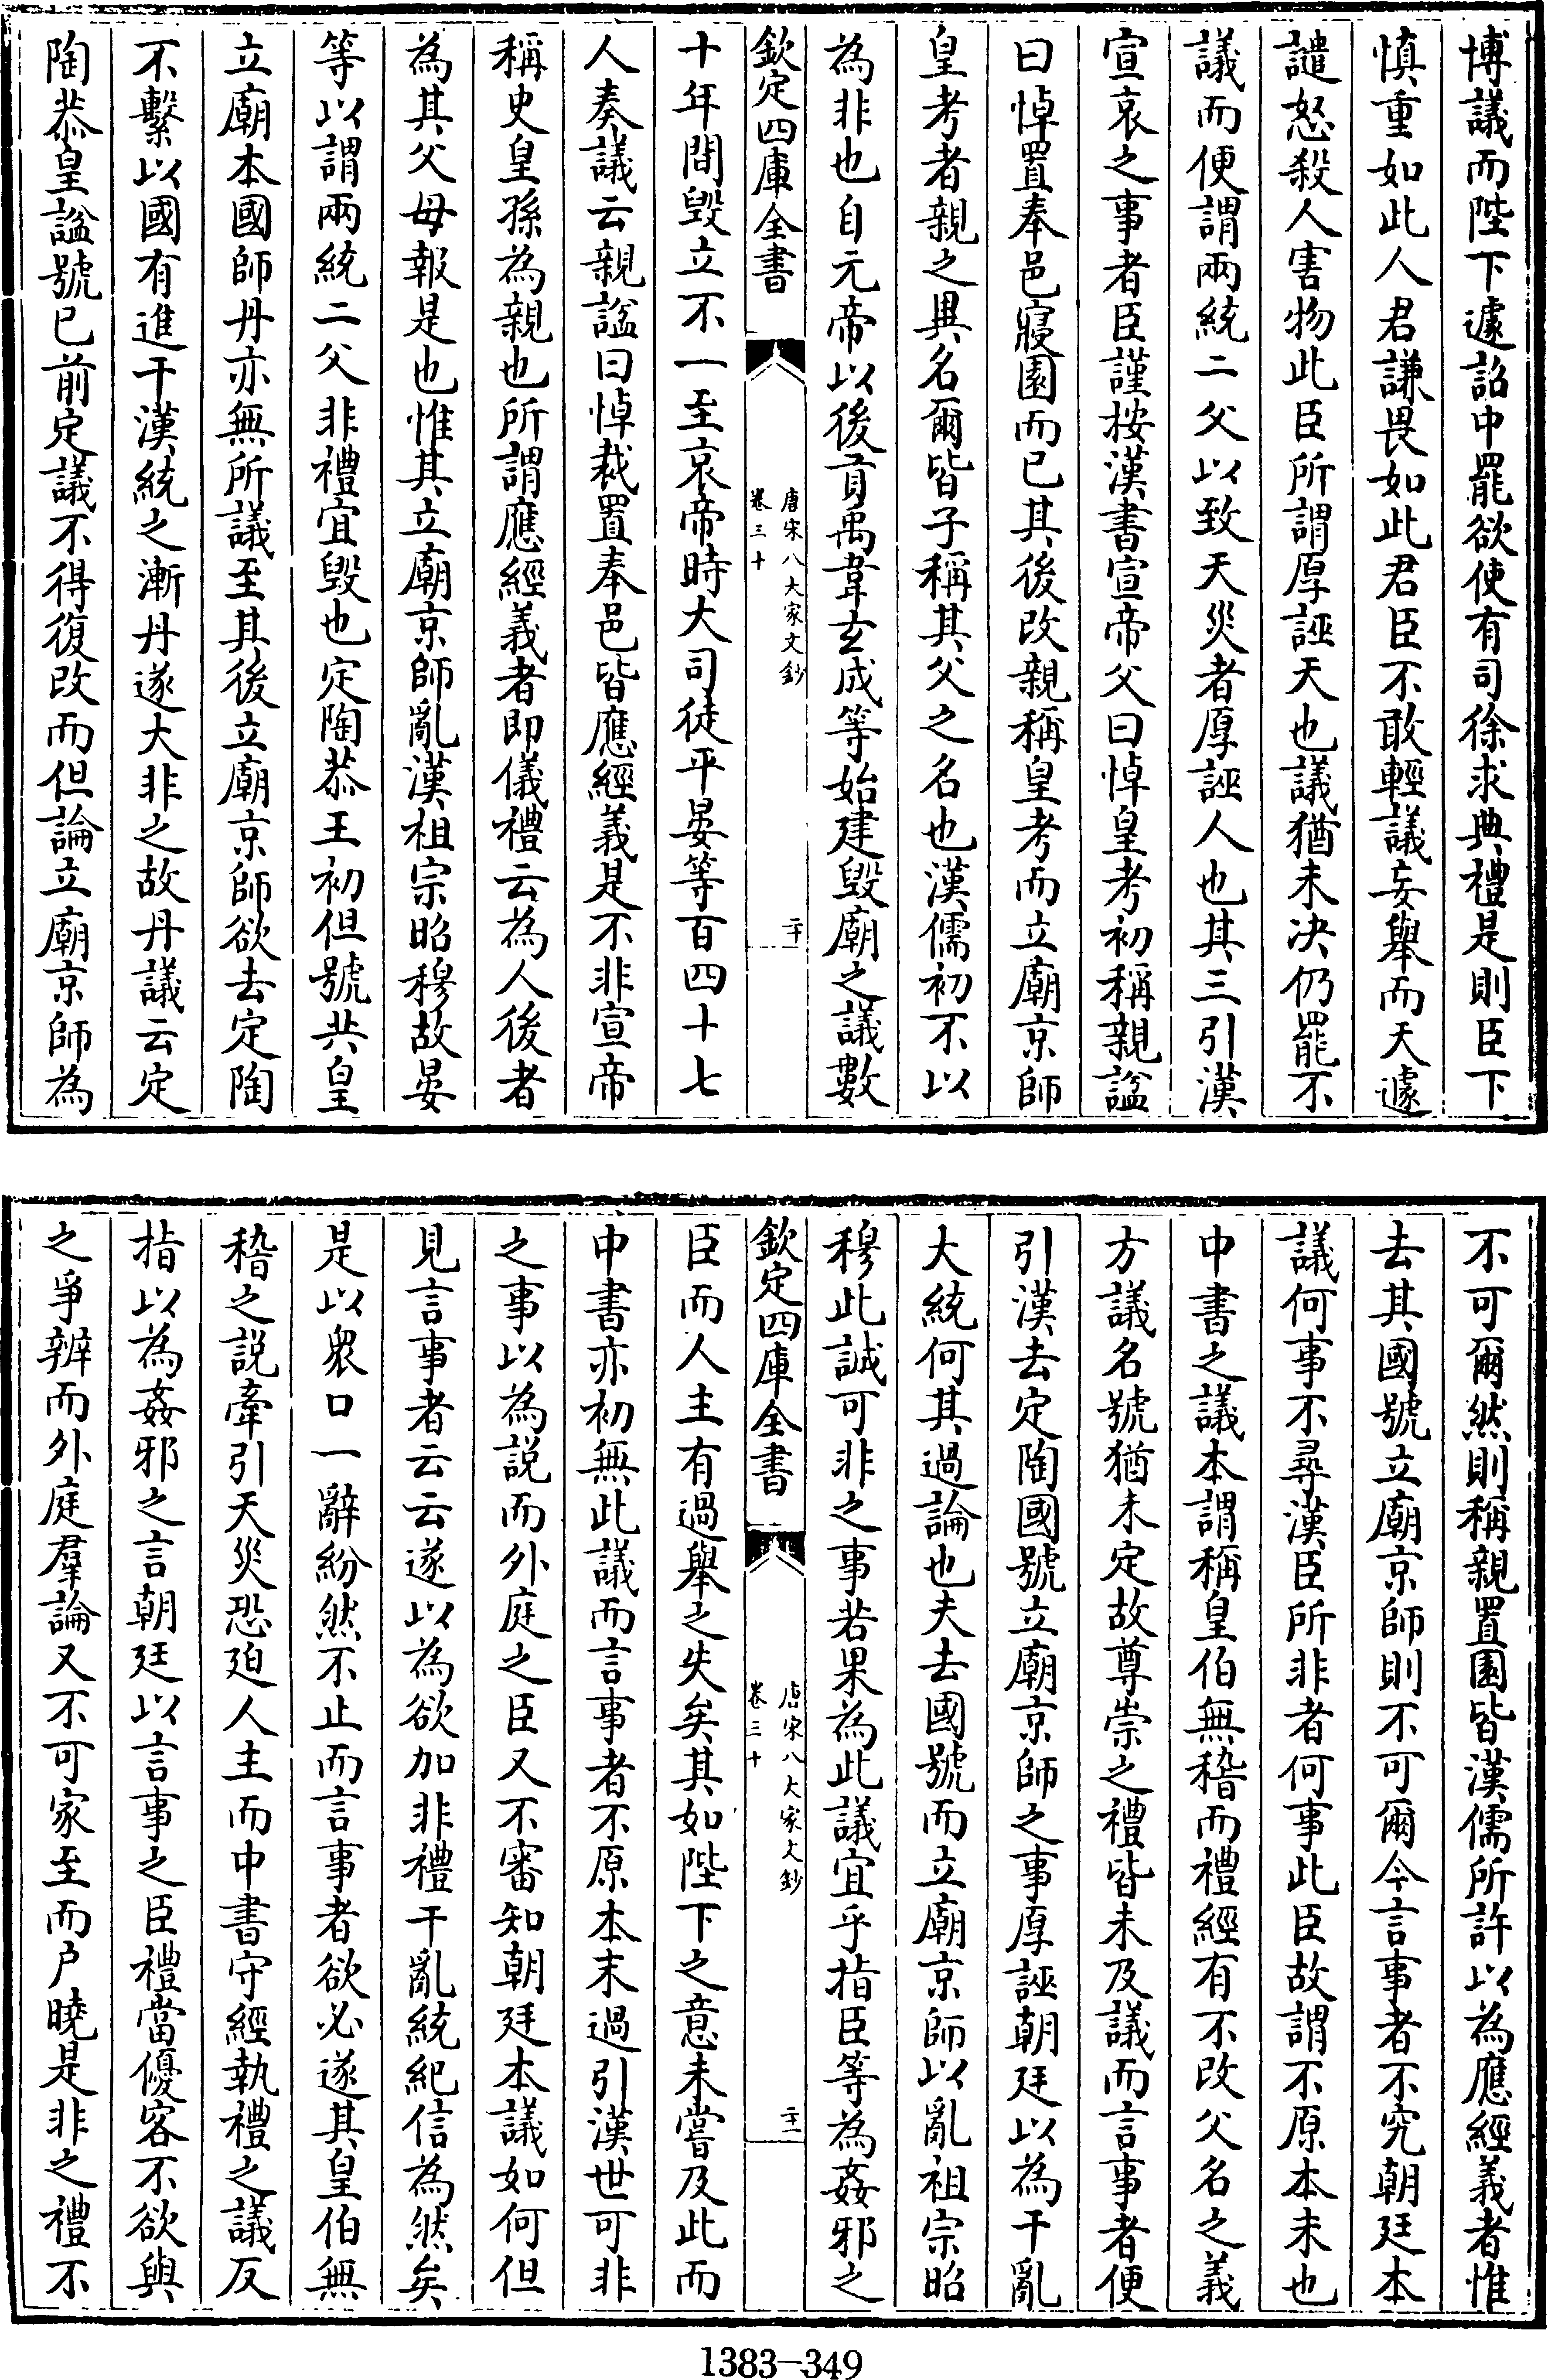 博議而陛下遽詔中罷欲使有司徐求典禮是則臣下
慎重如此人君謙畏如此君臣不敢輕議妄舉而天遽
譴怒殺人害物此臣所謂厚誣天也議猶未決仍罷不
議而便謂兩統二父以致天災者厚誣人也其三引漢
宣哀之事者臣謹按漢書宣帝父曰悼皇考初稱親諡
曰悼置奉邑寢園而已其後改親稱皇考而立廟京師
皇考者親之異名爾皆子稱其父之名也漢儒初不以
為非也自元帝以後貢禹韋玄成等始建毀廟之議數
欽定四庫全書
唐宋八大家文鈔
卷三十
二十
十年間毀立不一至哀帝時大司徒平晏等百四十七
人奏議云親諡曰悼裁置奉邑皆應經義是不非宣帝
稱史皇孫為親也所謂應經義者即儀禮云為人後者
為其父母報是也惟其立廟京師亂漢祖宗昭穆故晏
等以謂兩統二父非禮宜毀也定陶恭王初但號共皇
立廟本國師丹亦無所議至其後立廟京師欲去定陶
不繫以國有進干漢統之漸丹遂大非之故丹議云定
陶恭皇諡號已前定議不得復改而但論立廟京師為
不可爾然則稱親置園皆漢儒所許以為應經義者惟
去其國號立廟京師則不可爾今言事者不究朝廷本
議何事不尋漢臣所非者何事此臣故謂不原本末也
中書之議本謂稱皇伯無稽而禮經有不改父名之義
方議名號猶未定故尊崇之禮皆未及議而言事者便
引漢去定陶國號立廟京師之事厚誣朝廷以為干亂
大統何其過論也夫去國號而立廟京師以亂祖宗昭
穆此誠可非之事若果為此議宜乎指臣等為姦邪之
欽定四庫全書
唐宋八大家文鈔
卷三十
二十一
臣而人主有過舉之失矣其如陛下之意未嘗及此而
中書亦初無此議而言事者不原本末過引漢世可非
之事以為說而外庭之臣又不審知朝廷本議如何但
見言事者云云遂以為欲加非禮干亂統紀信為然矣
是以眾口一辭紛然不止而言事者欲必遂其皇伯無
稽之說牽引天災恐迫人主而中書守經執禮之議反
指以為姦邪之言朝廷以言事之臣禮當優容不欲與
之爭辨而外庭羣論又不可家至而戶曉是非之禮不
1383—349